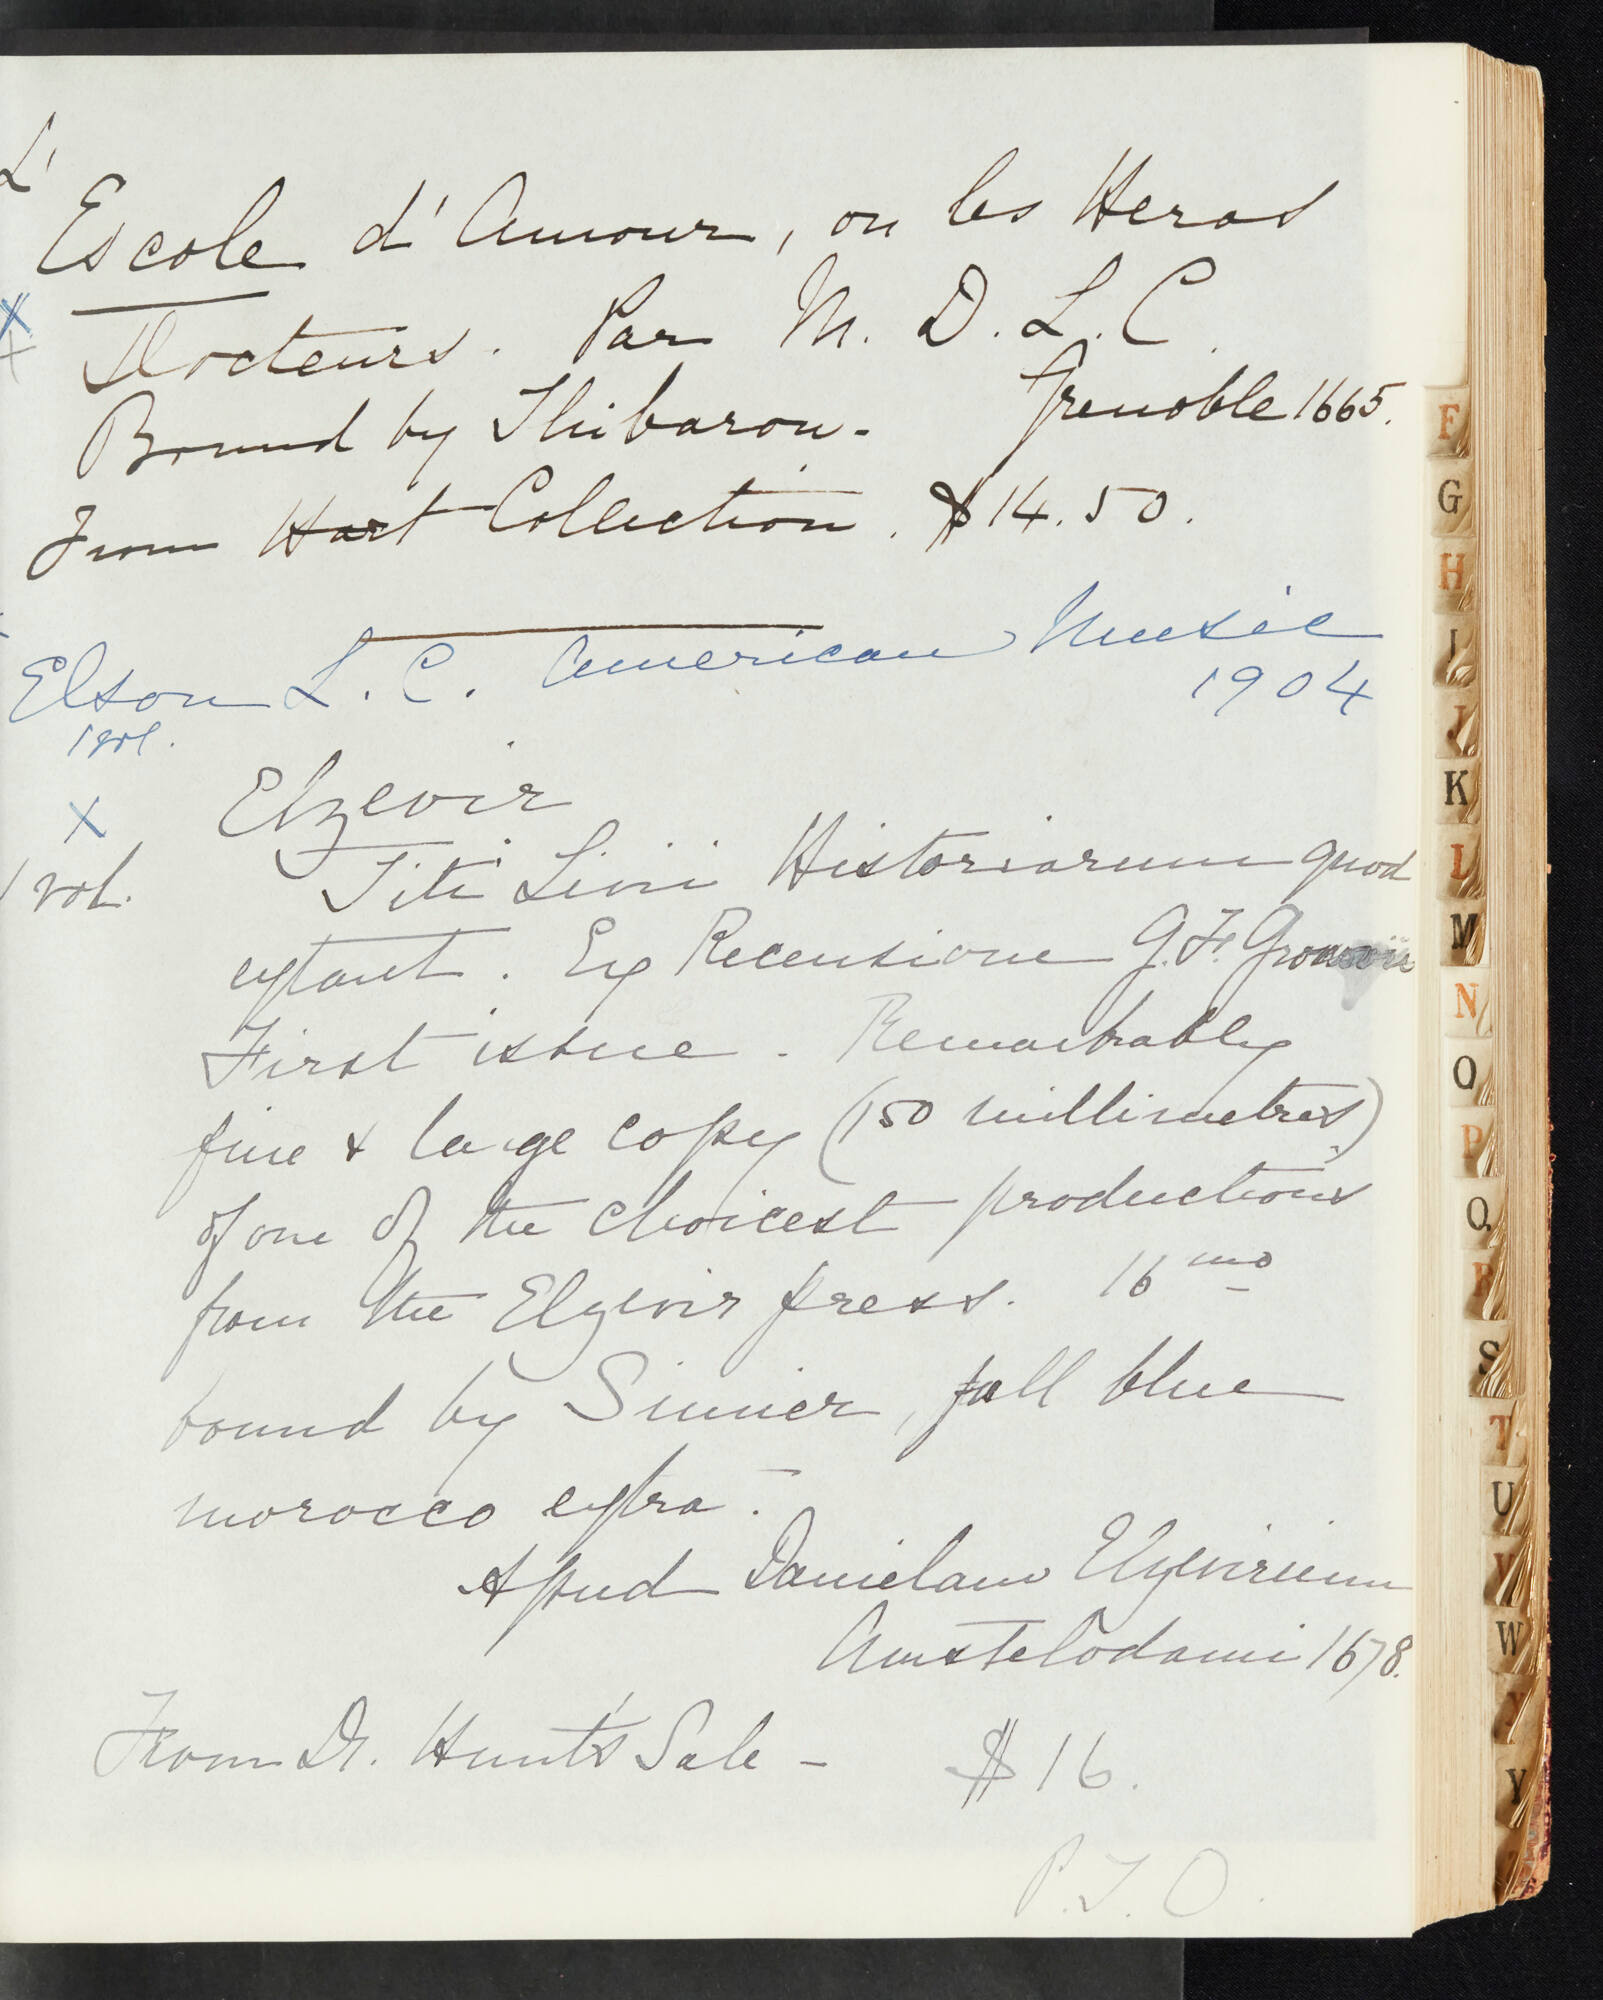 L'
Escole d'Amour, ou les Heros
Docteurs. Par M. D. L. C.
Grenoble 1665.
Bound by Thibaron -
From Hart Collection. $14.50.
Elson L. C. American Music
1904
1 vol.
Elzevir
1 vol. Titi Livii Historiarum quod
extant. Ex Recensione G. F.
First issue. Remarkably
fine & large copy (150 millimetres)
of one of the choicest productions
from the Elzevir press. 16mo
bound by Simier, full blue
morocco extra.
Apud Danielam Elzevirium
Amstelodami 1678.
From Dr. Hunt's Sale - $16.
P.T.O.
F
G
H
I
J
K
L
M
N
O
P
Q
R
S
T
U
V
W
Y